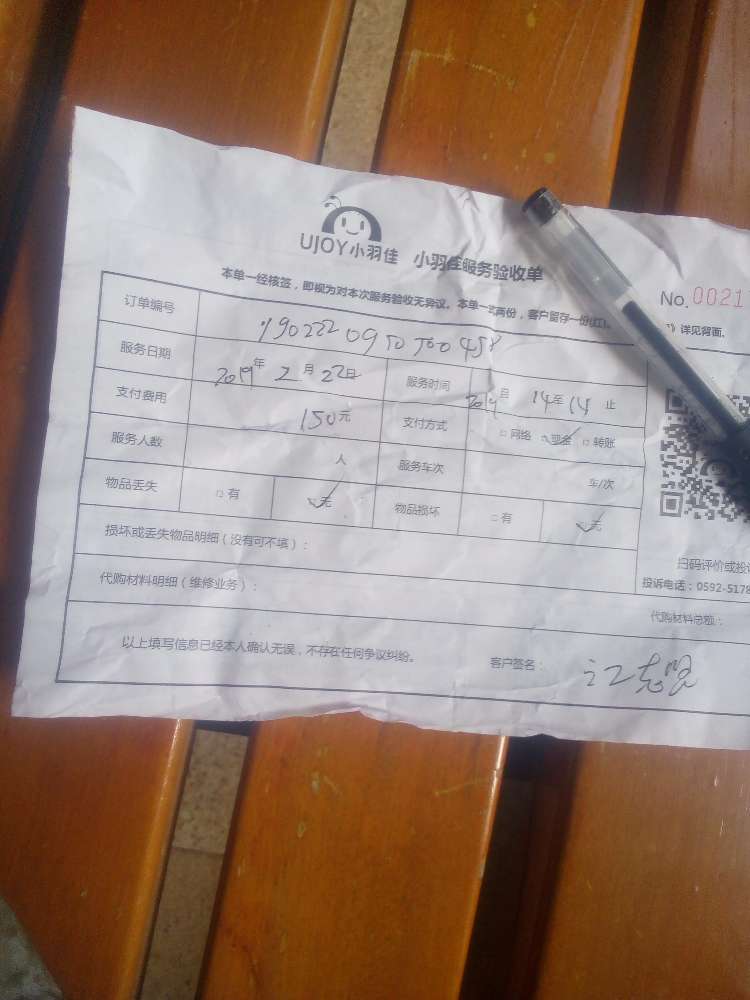 UJOY小羽佳 小羽佳服务验收单
本单一经核签，即视为对本次服务验收无异议。本单一式两份，客户留存一份
No.0021
详见背面。
订单编号
服务日期 2019年2月22日 服务时间 14至14止
支付费用 150元 支付方式 □网络 现金 □转账
服务人数 人 服务车次 车/次
物品丢失 □有 □无 物品损坏 □有 □无
损坏或丢失物品明细（没有可不填）：
扫码评价或投
代购材料明细（维修业务）：
投诉电话：0592-5178
代购材料总额：
以上填写信息已经本人确认无误，不存在任何争议纠纷。 客户签名：